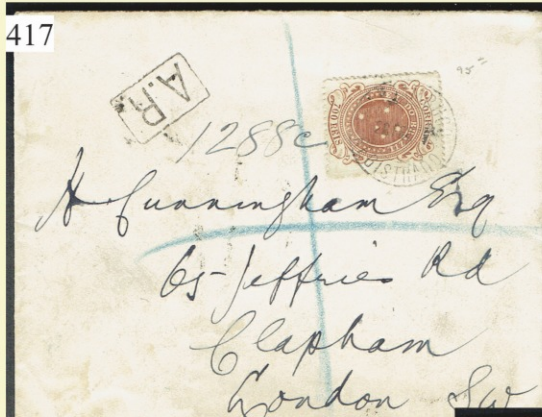 417
A.R.
1288c
H Cunningham Esq
65 Jeffries Rd
Clapham
London SW